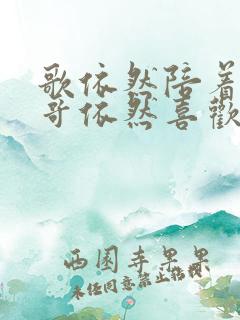 歌依然陪着
哥依然喜歡
西園寺果果
未经同意禁止转载